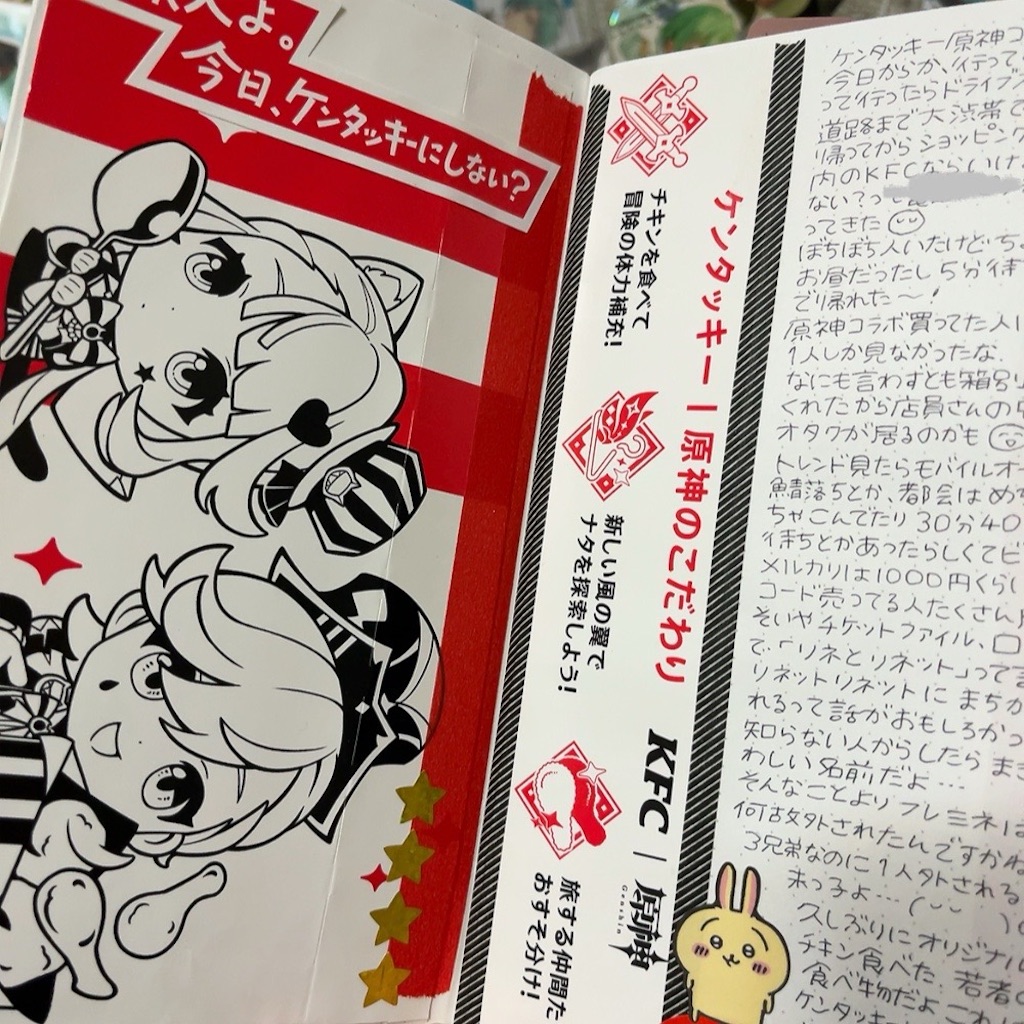 旅人よ。
今日、ケンタッキーにしない?
ケンタッキー|原神のこだわり
チキンを食べて
冒険の体力補充!
新しい風の翼で
ナタを探索しよう!
旅する仲間た
おすそ分け!
KFC | 原神
Genshin
ケンタッキー原神コ
今日からか、行って
って行ったらドライブ
道路まで大渋滞で
帰ってからショッピング
内のKFCならいけ
ない?って
ってきた
ぼちぼち人いたけどちょ
お昼だったし5分待
で帰れた〜!
原神コラボ買ってた人
1人しか見なかったな.
なにも言わずとも箱
くれたから店員さんの
オタクが居るのかも
トレンド見たらモバイルオー
鯖落ちとか、都会はめち
ちゃこんでたり30分40
待ちとかあったらしくてビ
メルカリは1000円くらい
コード売ってる人たくさん
そいやチケットファイル、ロ
で「リネとリネット」って
リネットリネットにまちが
れるって話がおもしろかっ
知らない人からしたらまぎ
わしい名前だよ…
そんなことよりフレミネは
何故外されたんですかね
3兄弟なのに1人外される
末っ子よ…
久しぶりにオリジナル
チキン食べた、若者の
食べ物だよこれ
ケンタッキー